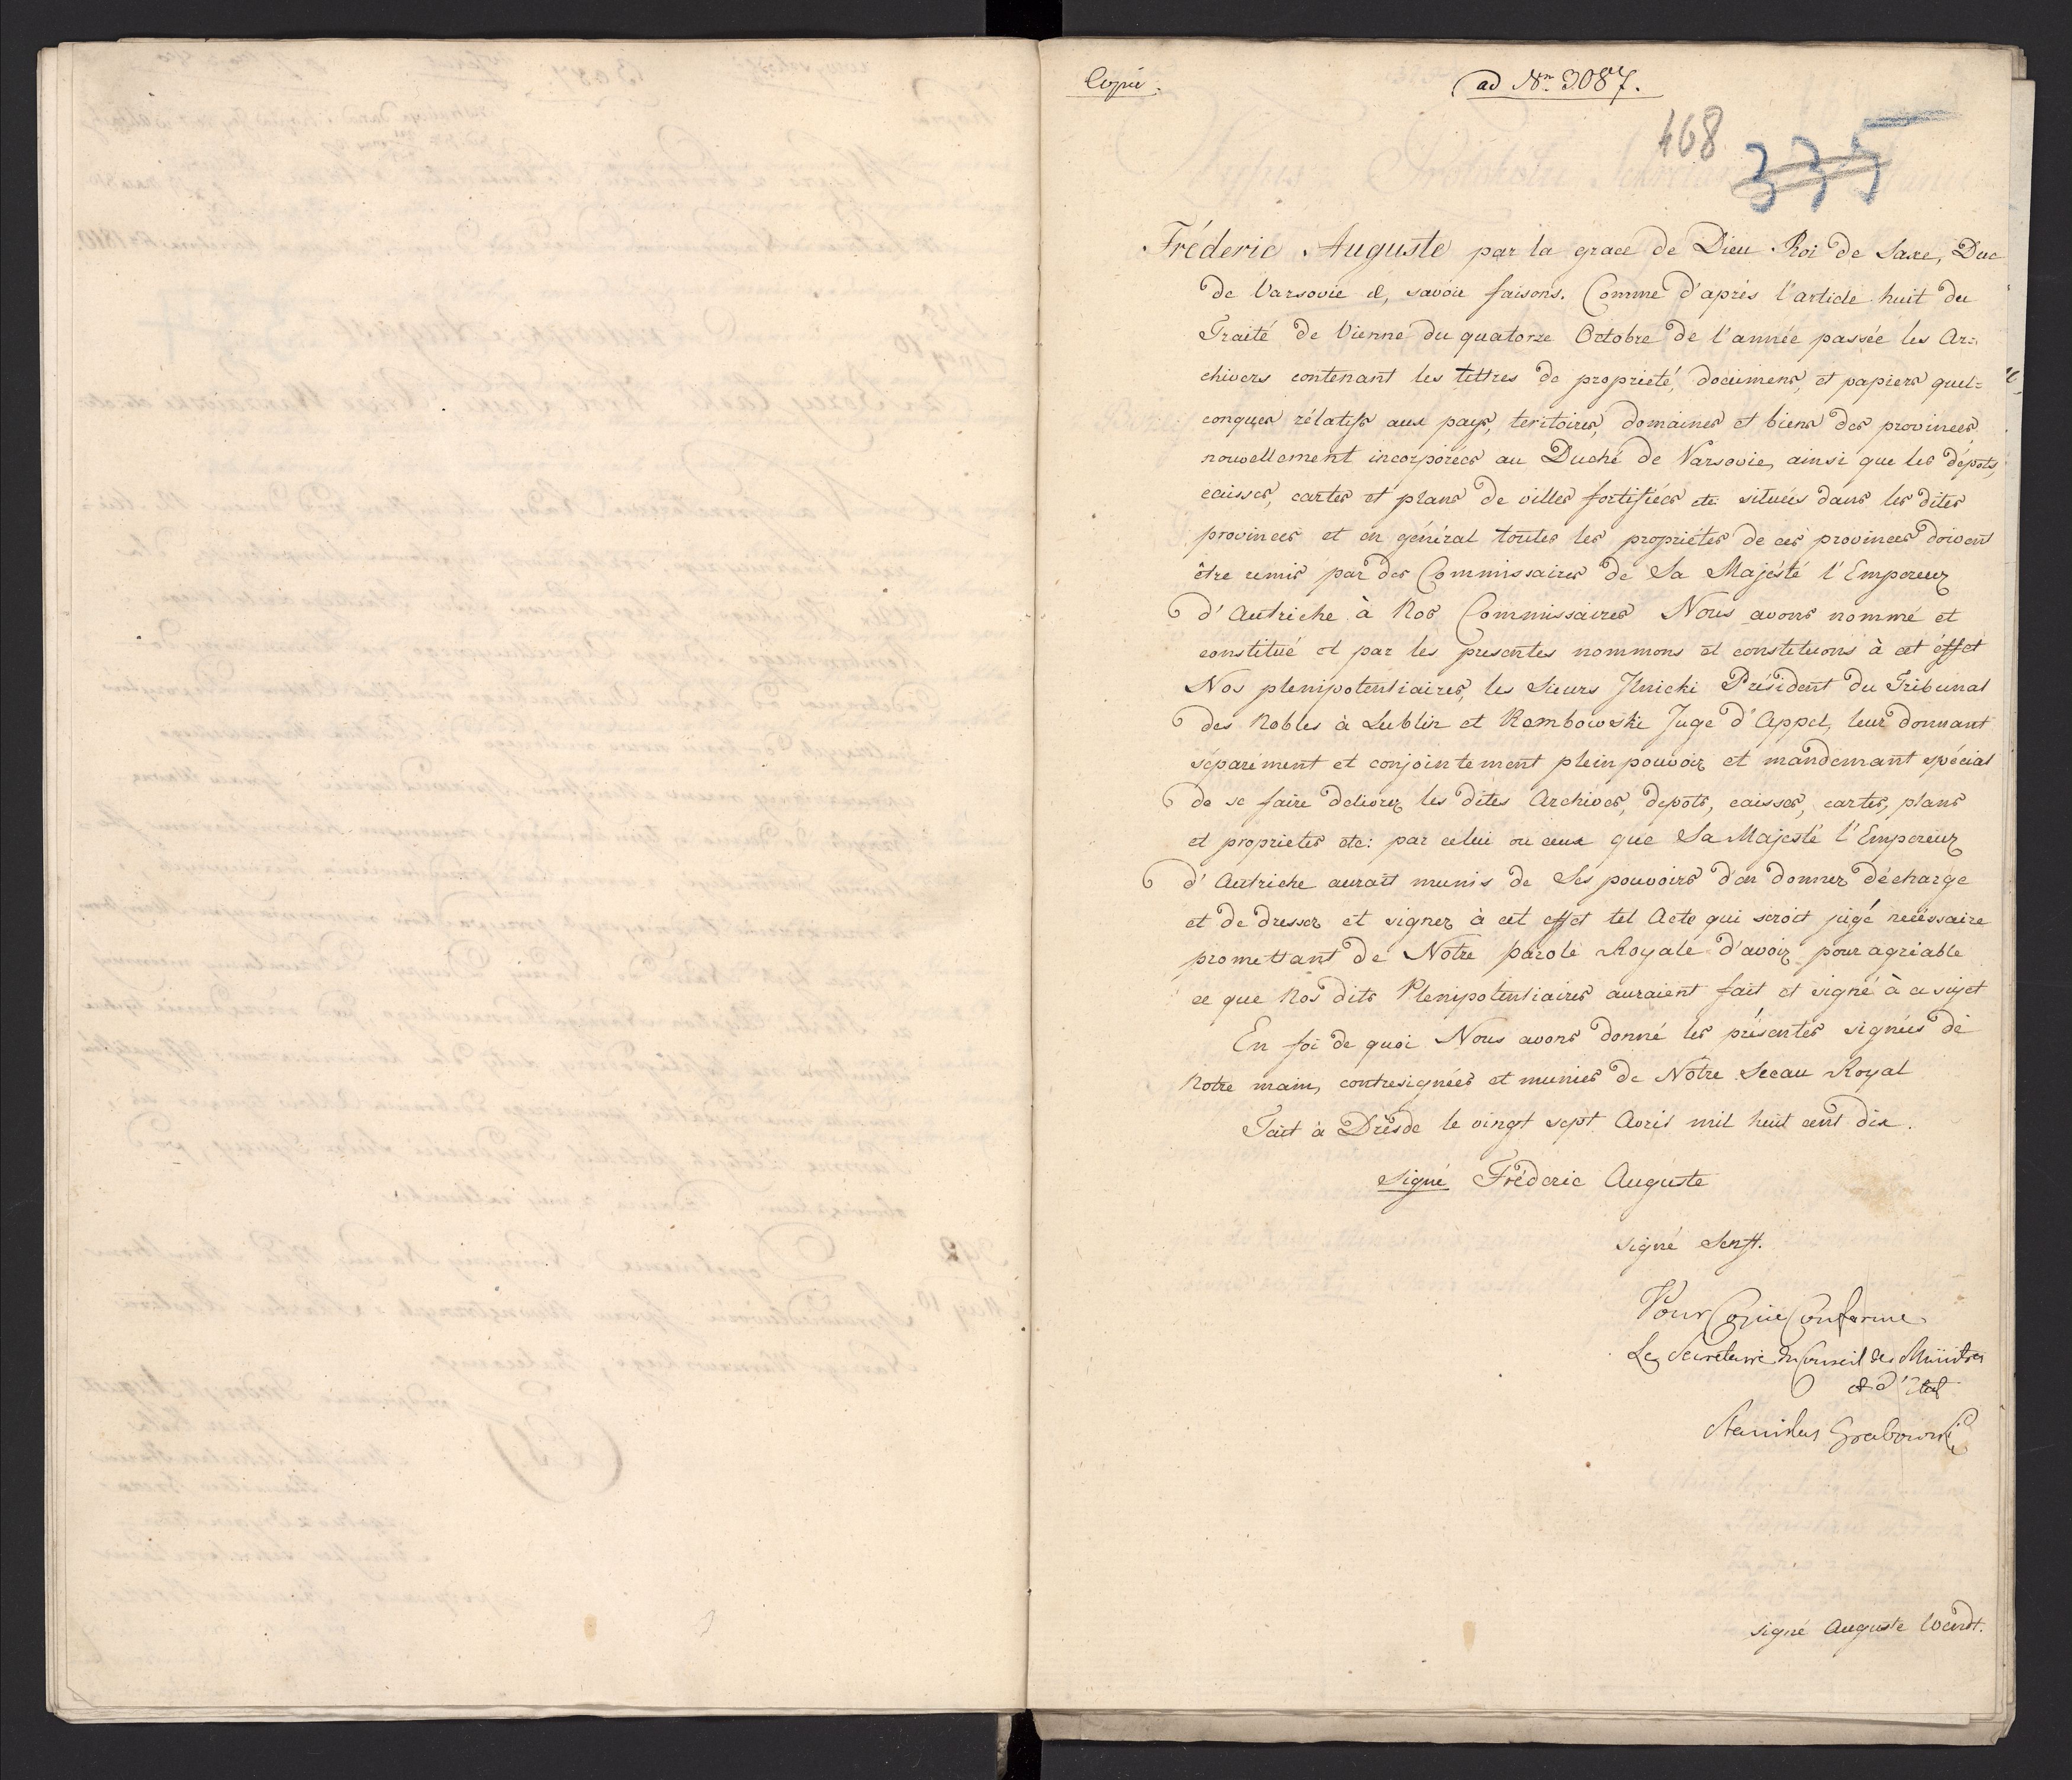 Copie.
ad Nrn 3087.
468
335
Fréderic Auguste par la grace de Dieu Roi de Saxe, Duc
de Varsovie &, savoir faisons. Comme d'aprés l'article huit du
Traité de Vienne du quatorze Octobre de l'année passée les Ar=
chives contenant les tittres de proprieté, documens, et papiers quel=
conques rélatifs aux pays, teritoires, domaines et biens des provinces
nouvellement incorporées au Duché de Varsovie, ainsi que les dépots,
caisses, cartes et plans de villes fortifiées etc situées dans les dites
provinces et en général toutes les propriétés de ces provinces doivent
être remis par des Commissaires de Sa Majésté l'Empereur
d'Autriche à Nos Commissaires Nous avons nommé et
constitué et par les presentes nommons et constituons à cet éffet
Nos plenipotentiaires, les Sieurs Ilnicki Président du Tribunal
des Nobles à Lublin et Rembowski Juge d'Appel, leur donnant
séparément et conjointement pleinpouvoir et mandemant spécial
de se faire delivrer les dites Archives, depots, caisses, cartes, plans
et proprietés etc: par celui ou ceux que Sa Majesté l'Empereur
d'Autriche aurait munis de Ses pouvoirs d'en donner décharge
et de dresser et signer à cet effet tel Acte qui seroit jugé necéssaire
promettant de Notre parole Royale d'avoir pour agréable
ce que Nos dits Plenipotentiaires auraient fait et signé à ce sujet
En foi de quoi Nous avons donné les présentes signées de
Notre main, contresignées et munies de Notre Sceau Royal
Fait à Dresde le vingt sept Avril mil huit cent dix.
signé Fréderic Auguste
signé Senft.
Pour Copie Conforme
Le Secretaire du Conseil des Ministres
et d'Etat
Stanislas Grabowski
signé Auguste